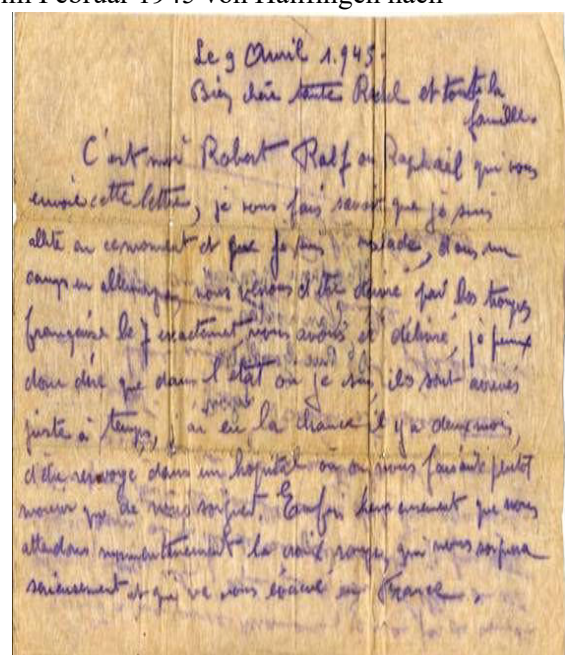 im Februar 1945 von Hailfingen nach
Le 9 Avril 1.945.
Bien chère tante Rachel et toute la
famille.
C'est moi Robert Ralf ou Raphaël qui vous
envoie cette lettre, je vous fais savoir que je suis
alité en ce moment et que je suis malade, dans un
camp en allemagne, nous venons d'être délivré par les troupes
française le 7 exactement nous avons été délivré, je peux
donc dire que dans l'état où je suis, ils sont arrivés
juste à temps, ai eu la chance il y a deux mois,
d'être renvoyé dans un hopital où on nous faisait plutôt
mourir que de nous soigner. Enfin heureusement que nous
attendons maintenant la croix rouge, qui nous soignera
sérieusement et qui va nous évacué en France.